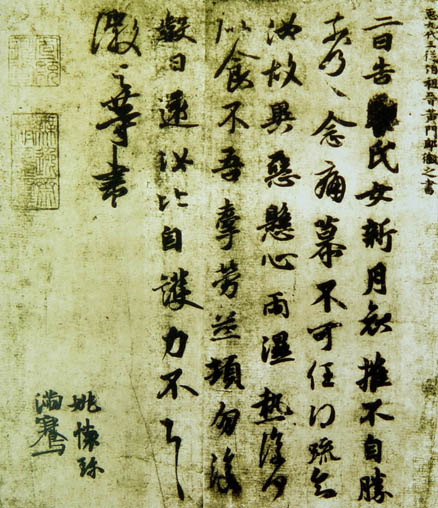 臣六代五從伯祖晉黃門郎徽之書
二日告氏女新月哀摧不自勝
奈何〻念痛慕不可任得疏知
汝故異惡懸心雨濕熱復何
似食不吾牽勞並頓勿復
數日還汝比自護力不具
徽之等書
姚懷珍
滿騫